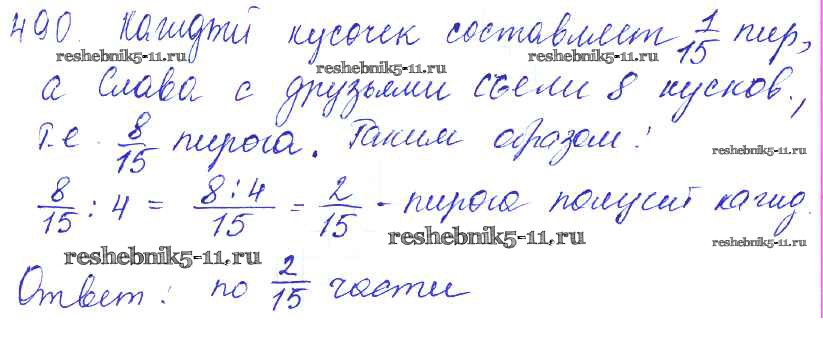 490. Каждый кусочек составляет 1/15 пир,
reshebnik5-11.ru reshebnik5-11.ru reshebnik5-11.ru
а Слава с друзьями съели 8 кусков.,
т.е. 8/15 пирога. Таким образом:
reshebnik5-11.ru
8/15 : 4 = 8:4/15 = 2/15 - пирога получит кажд.
reshebnik5-11.ru reshebnik5-11.ru
reshebnik5-11.ru
Ответ: по 2/15 части